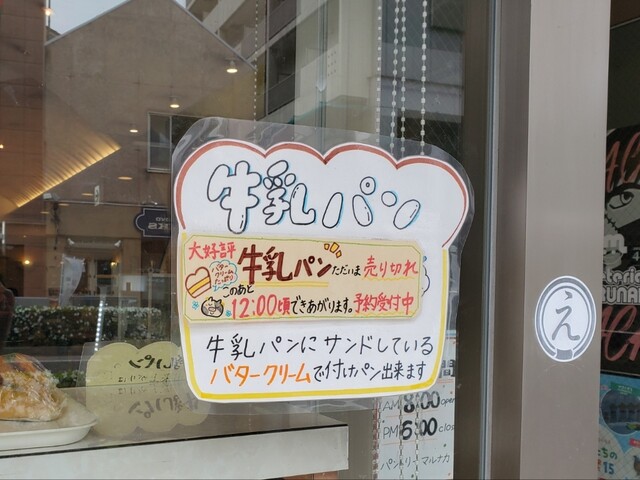 牛乳パン
大好評
バター
クリーム
たっぷり
牛乳パン ただいま 売り切れ
このあと
12:00頃できあがります。予約受付中
牛乳パンにサンドしている
バタークリームで付けパン出来ます
間
AM 8:00 open
PM 6:00 clos
パントリーマルナカ
え
15